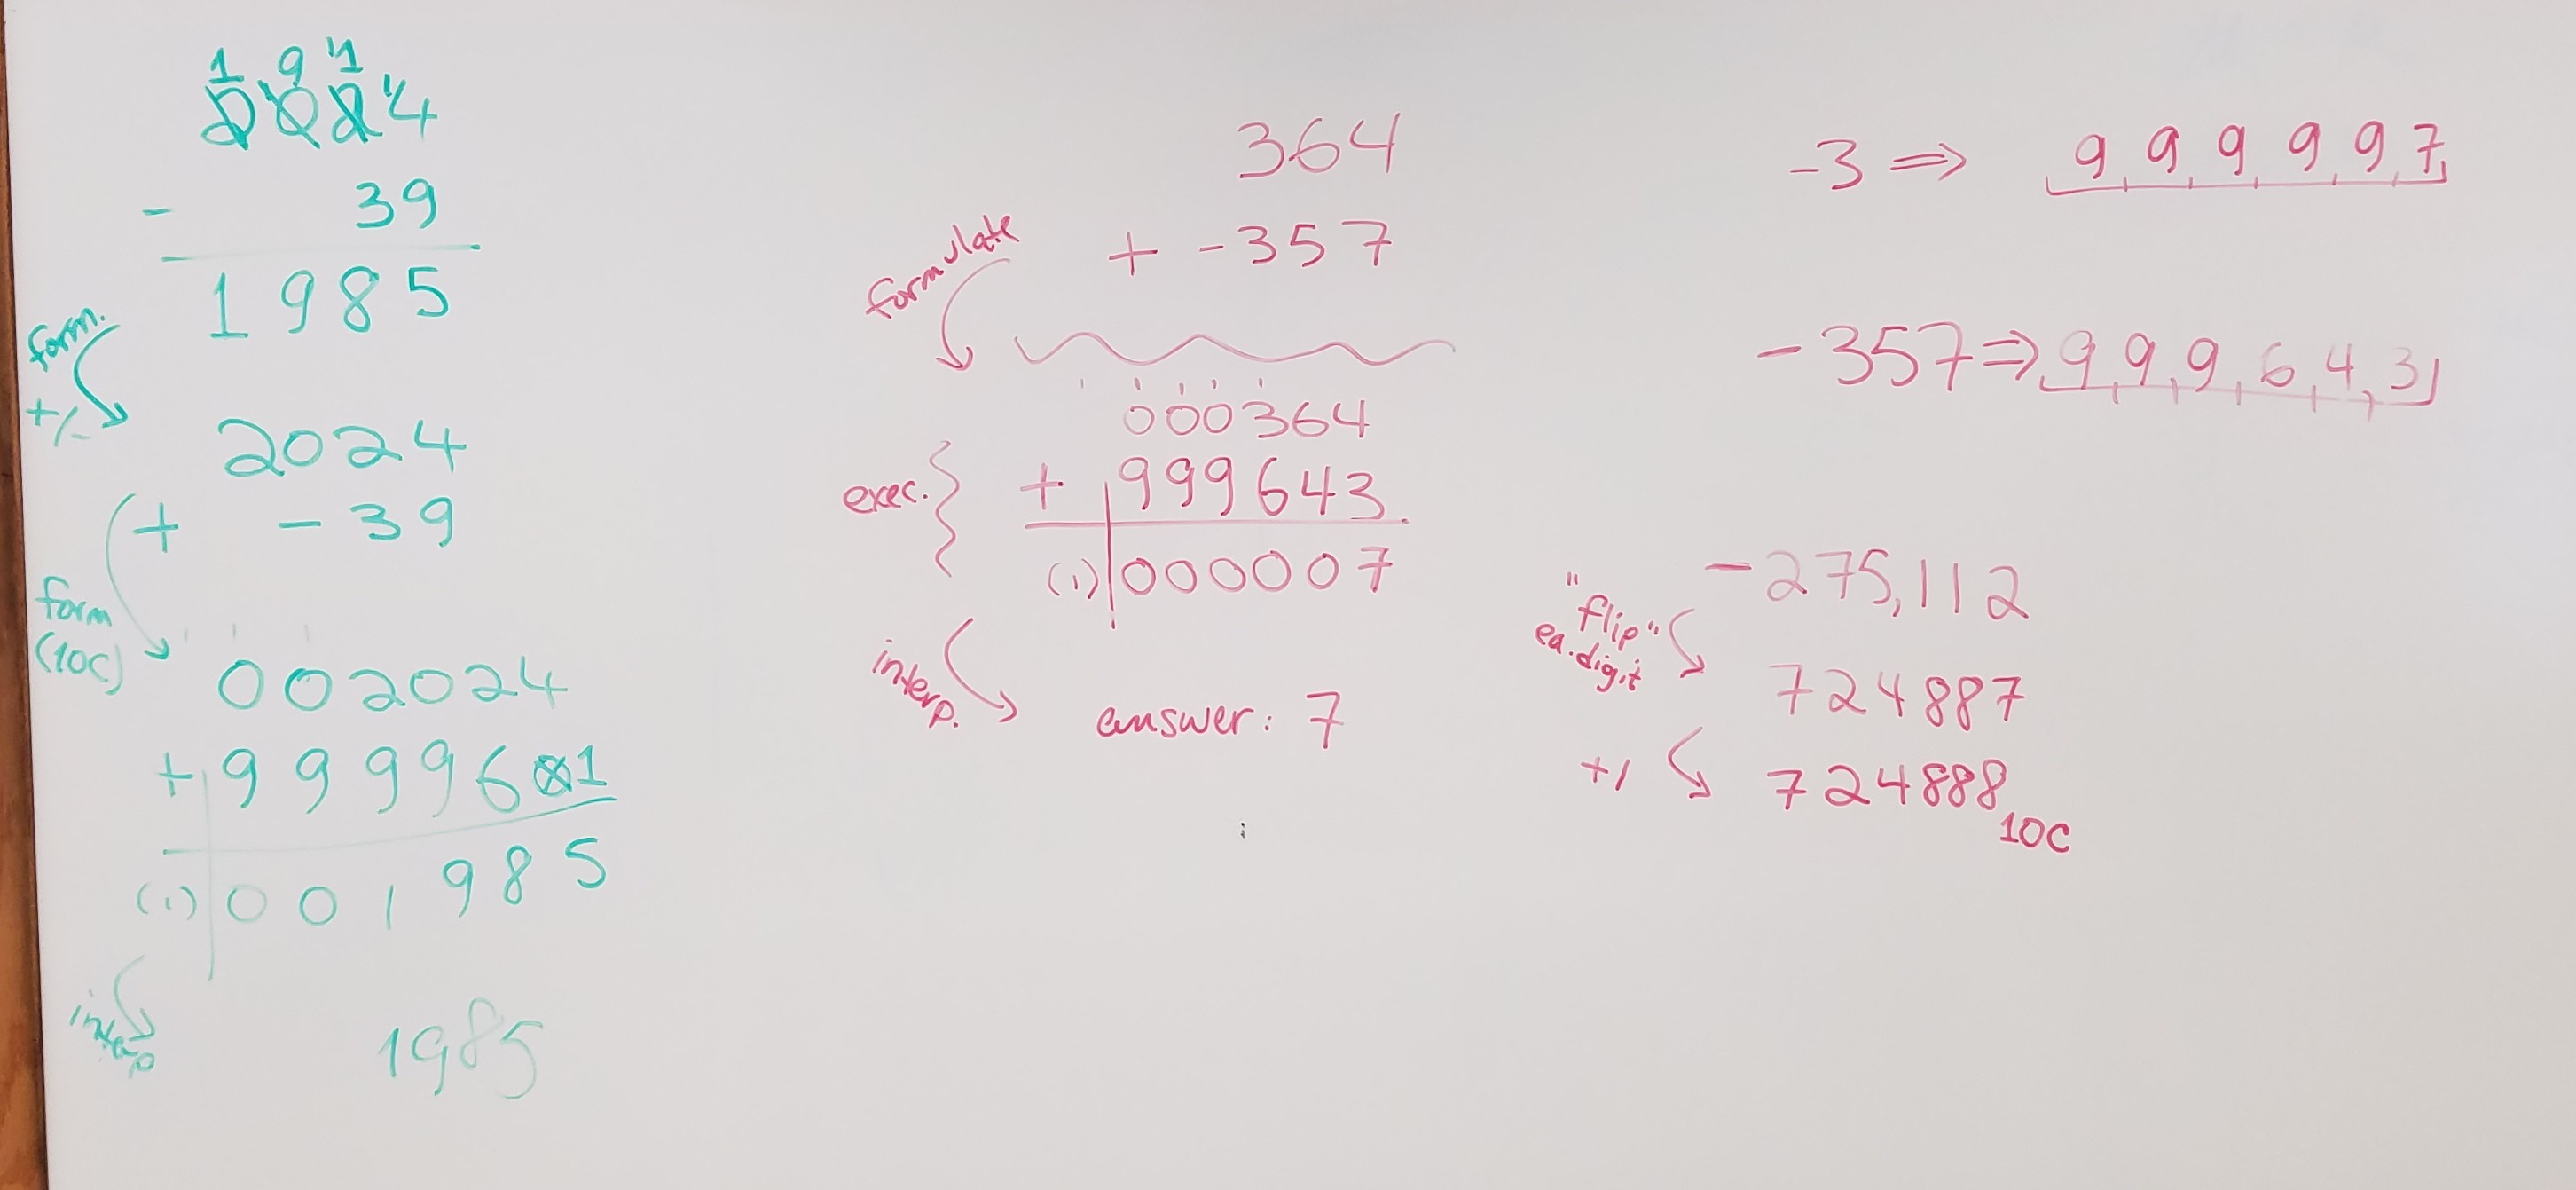 1 9 '1
2 0 2 '4
- 39
1985
form.
+/-
2024
+ -39
form
(10C)
002024
+ 9999601
(1) 001985
interp
1985
364
+ -357
formulate
000364
exec.
+ 999643
(1) 000007
interp.
answer: 7
-3 ⇒ 999997
-357 ⇒ 999643
-275,112
"flip"
ea. digit
724887
+1
724888 10C